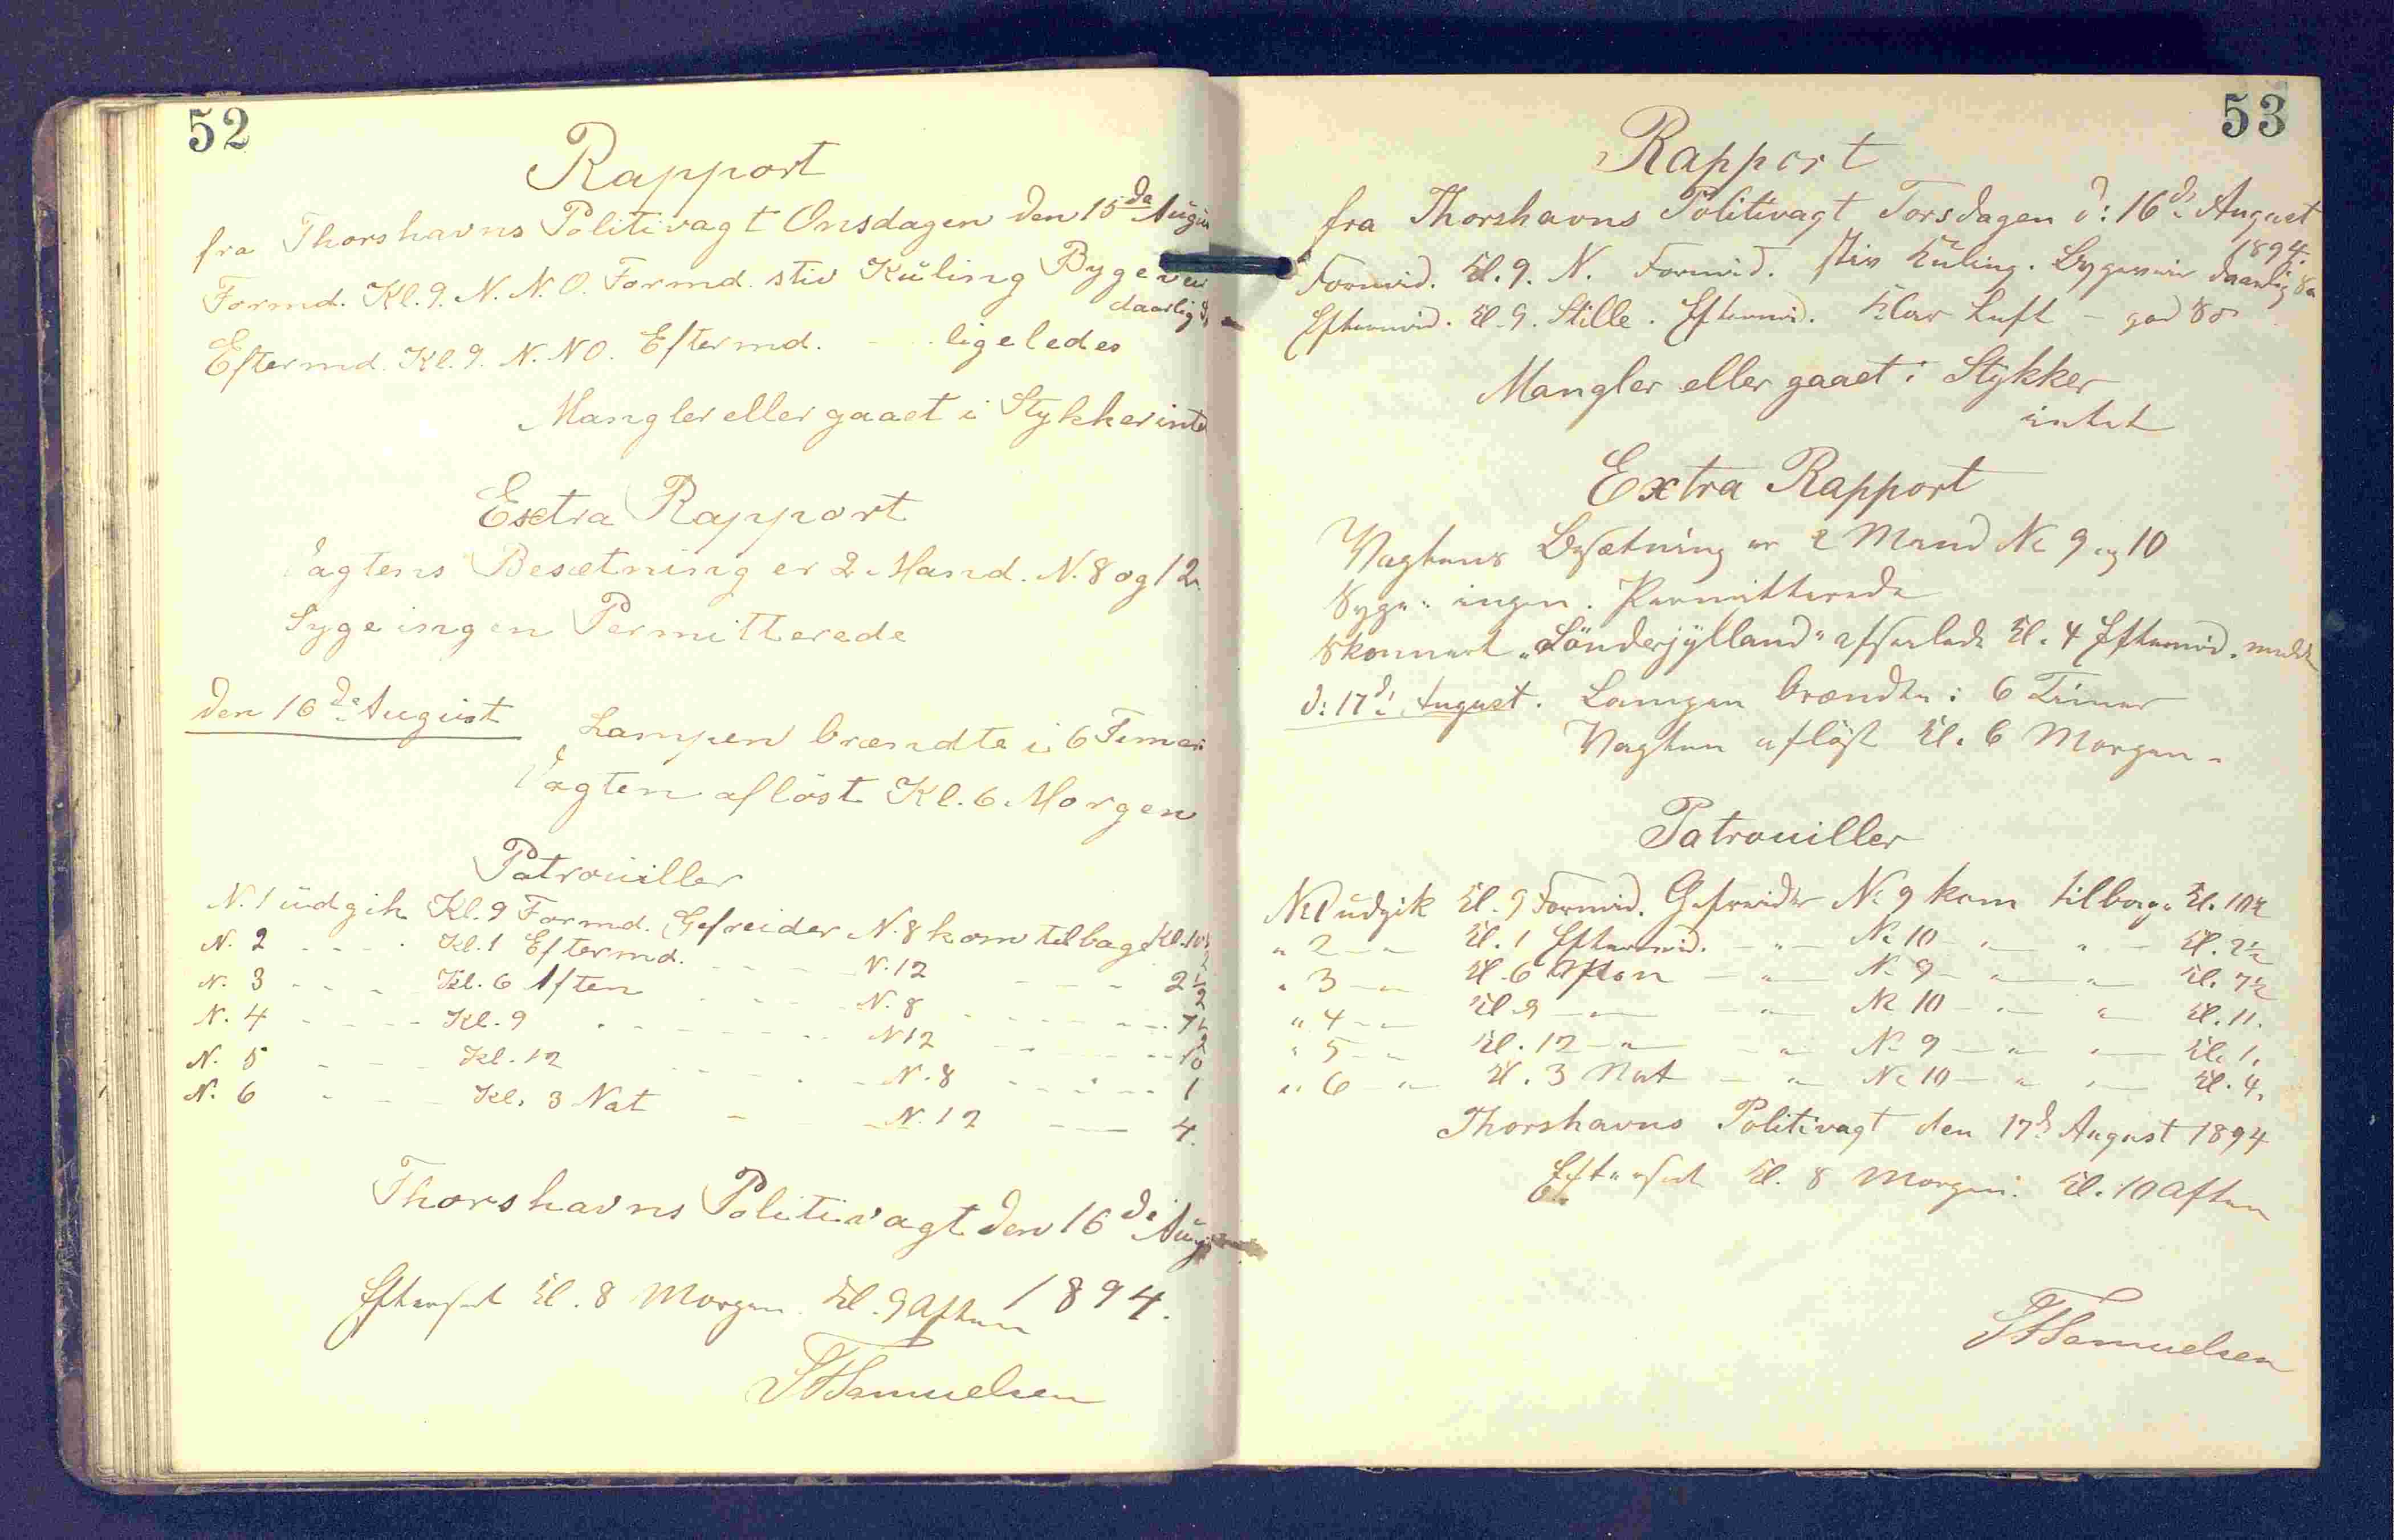 52
Rapport
fra Thorshavns Politivagt Onsdagen den 15de Augu
Formd. Kl. 9. N. N. O. Formd. stiv Kuling Bygeveir
daarlig
Eftermd. Kl. 9. N. NO. Eftermd. - - ligeledes
Mangler eller gaaet i Stykker inte
Extra Rapport
Vagtens Besætning er 2 Mand. N. 8 og 12.
Syge ingen Permitterede
den 16de August
Lampen brændte i 6 Timer
Vagten afløst Kl. 6 Morgen
Patrouiller
N. 1 udgik Kl. 9 Formd. Gefreider N. 8 kom tilbage Kl. 10½
N. 2 - - - Kl. 1 Eftermd. - - - N. 12 - - - 2½
N. 3 - - - Kl. 6 Aften - - - N. 8 - - - 7½
N. 4 - - - Kl. 9 - - - N 12 - - - 10
N. 5 - - - Kl. 12 - - - N. 8 - - - 1
N. 6 - - - Kl. 3 Nat - - N. 12 - - 4.
Thorshavns Politivagt den 16de Aug
1894.
Efterseet Kl. 8 Morgen Kl. 9 Aften
Samuelsen
53
Rapport
fra Thorshavns Politivagt Torsdagen d: 16de August
1894.
Formid. Kl. 9. N. Formid. stiv Kuling. Bygeveir daarlig Sø
Eftermid. Kl. 9. Stille. Eftermid. Klar Luft - god Sø
Mangler eller gaaet i Stykker
intet
Extra Rapport
Vagtens Besætning er 2 Mand No 9 og 10
Syge: ingen. Permitterede
Skonnert "Sönderjylland" afseilede Kl. 4 Eftermid.
d: 17de August. Lampen brændte i 6 Timer
Vagten aflöst Kl. 6 Morgen.
Patrouiller
No 1 udgik Kl. 9 Formid. Gefreider No 9 kom tilbage Kl. 10½
" 2 - " - Kl. 1 Eftermid. - " - No 10 - " - " - Kl. 2½
" 3 - " - Kl. 6 Aften - " - No 9 - " - " - Kl. 7½
" 4 - " - Kl. 9 - " - - " - No 10 - " - " - Kl. 11.
" 5 - " - Kl. 12 - " - - " - No 9 - " - " - Kl. 1.
" 6 - " - Kl. 3 Nat - " - No 10 - " - " - Kl. 4.
Thorshavns Politivagt den 17de August 1894
Efterseet Kl. 8 Morgen. Kl. 10 Aften
Samuelsen